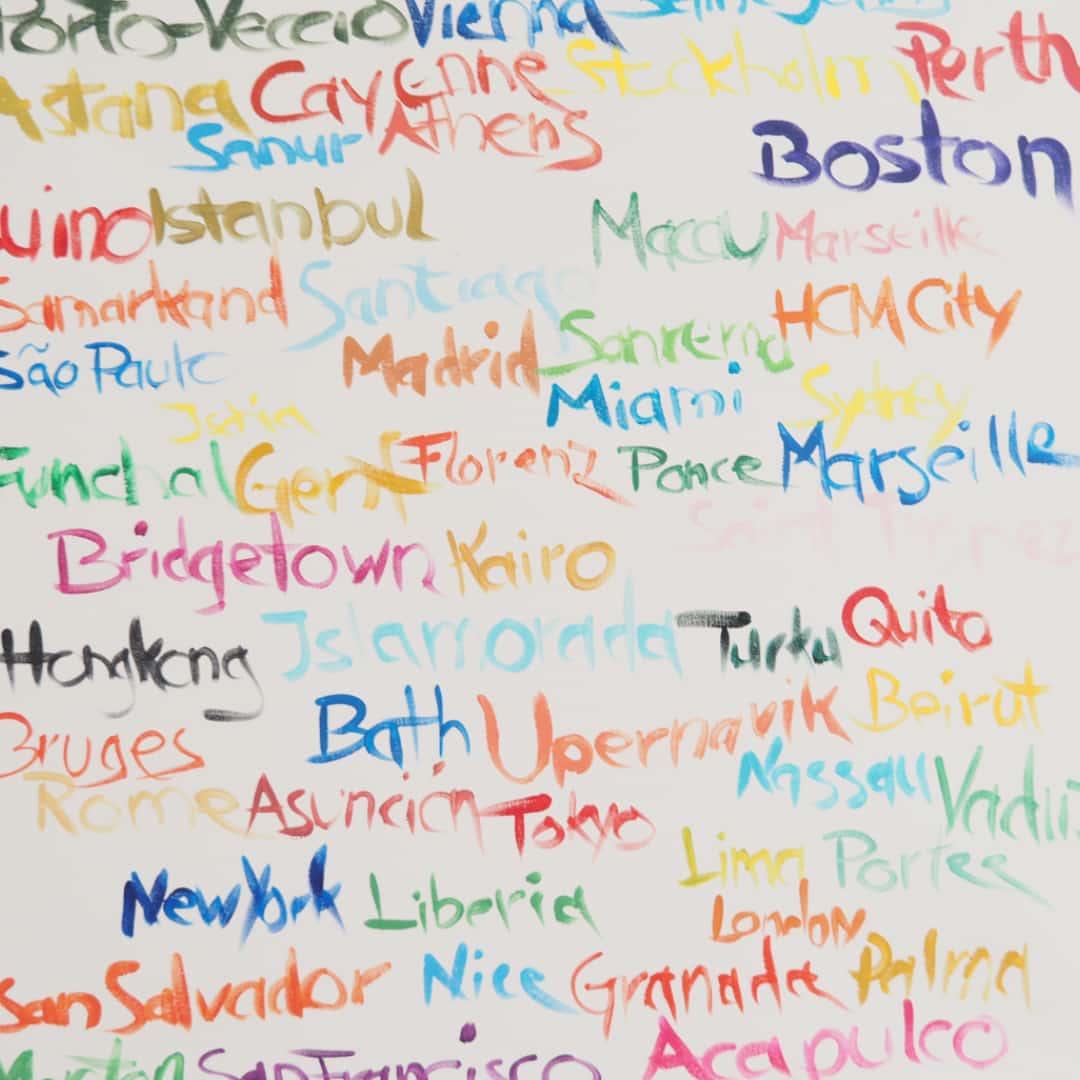 Porto-Veccio Vienna
Astana Cayenne Stockholm Perth
Sanur Athens Boston
Istanbul Macau Marseille
Samarkand Santiago HCM City
São Paulo Madrid Sanremo
Miami Sydney
Funchal Genf Florenz Ponce Marseille
Saint Tropez
Bridgetown Kairo
Hongkong Islamorada Turku Quito
Bruges Bath Upernavik Beirut
Rome Asunción Tokyo Nassau Vaduz
New York Liberia Lima Portee
London
San Salvador Nice Granada Palma
San Francisco Acapulco